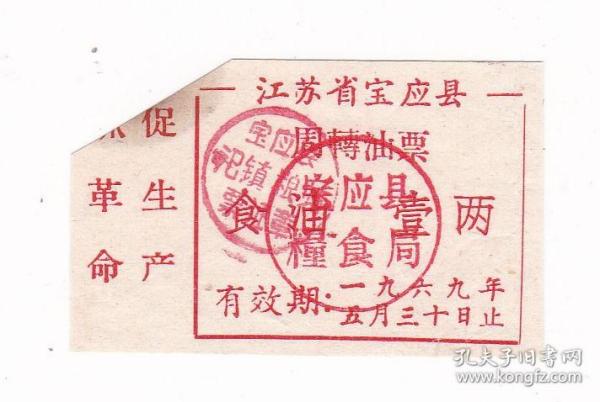 江苏省宝应县
周轉油票
食油壹两
有效期:一九六九年
五月三十日止
促生产
革命
宝应县
糧食局
宝应
镇
票
孔夫子旧书网
www.kongfz.com